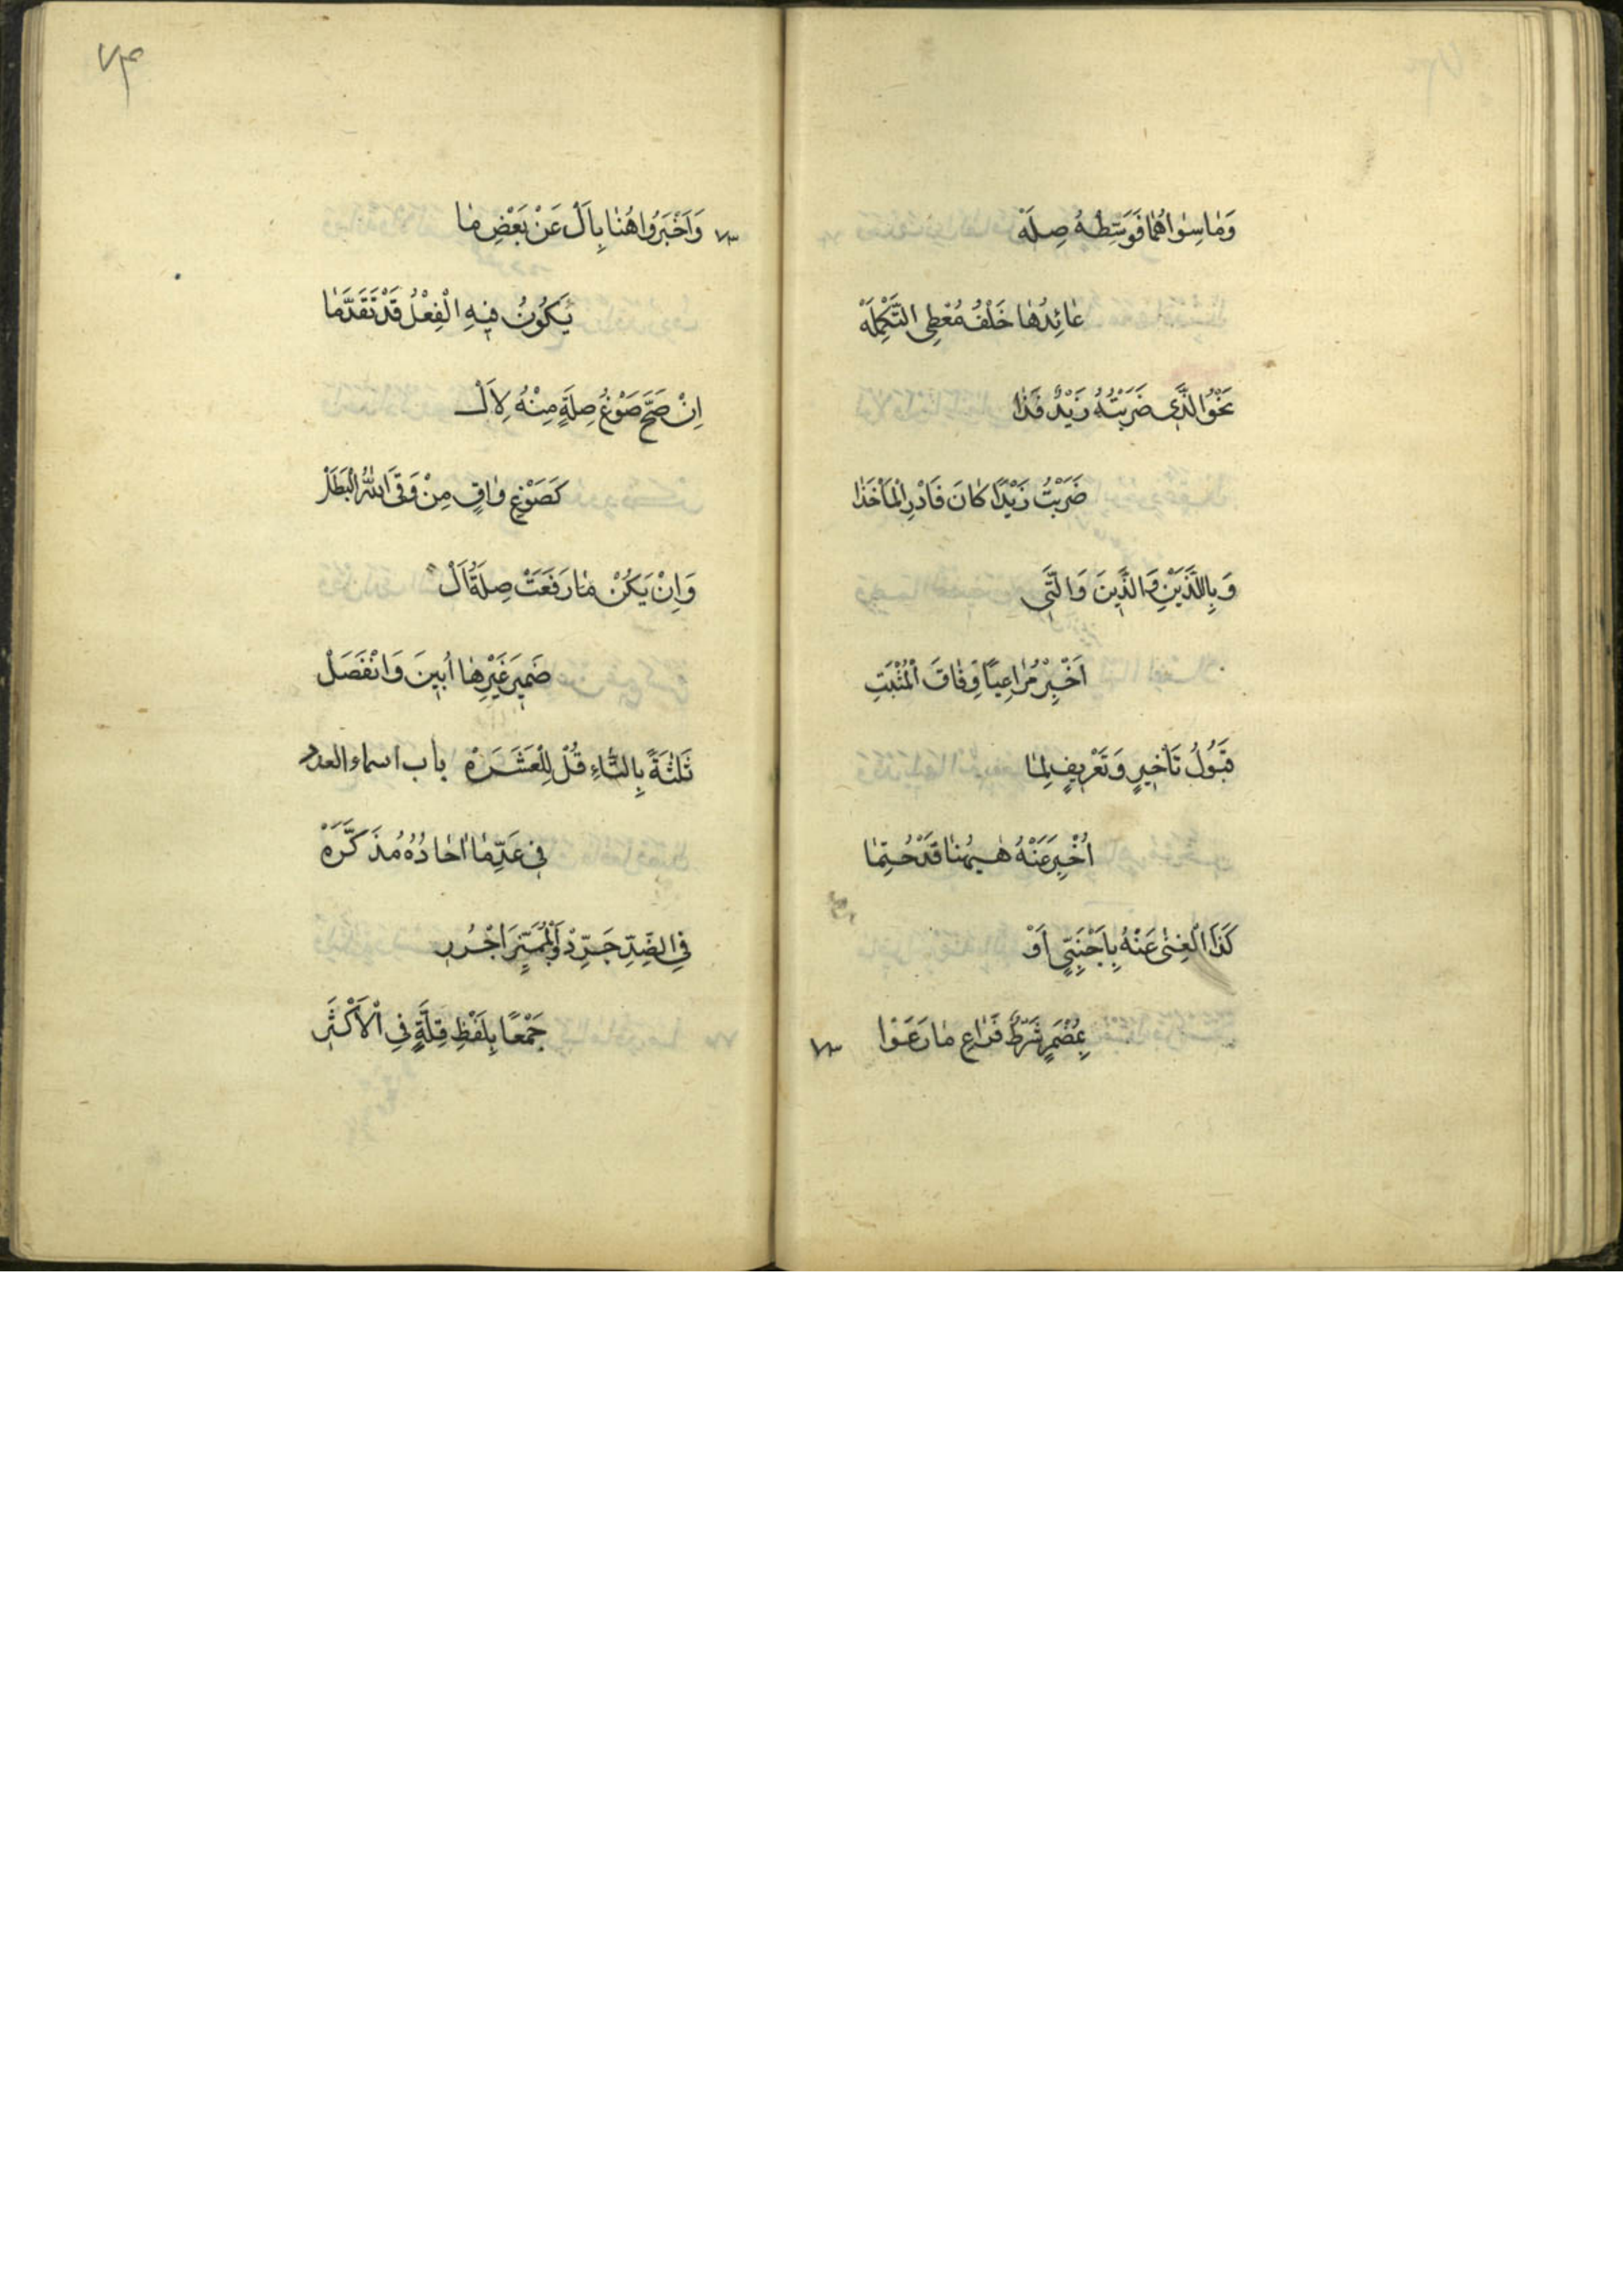 وَمٰا سِوٰاهُمٰا فَوَسِّطْهُ صِلَهْ
عٰائِدُهٰا خَلْفُ مُعْطِى التَّكْمِلَهْ
نَحْوُ الَّذِى ضَرَبْتُهُ زَيْدٌ فَذٰا
ضَرَبْتُ زَيْدًا كٰانَ فَادْرِ الْمَأْخَذٰا
وَبِاللَّذَيْنِ وَالَّذِينَ وَالَّتِى
اَخْبِرْ مُرٰاعِيًا وِفٰاقَ الْمُثْبَتِ
قَبُولُ تَأْخِيرٍ وَتَعْرِيفٍ لِمٰا
اُخْبِرَ عَنْهُ هٰيهُنٰا قَدْ حُتِمٰا
كَذَا الْغِنٰى عَنْهُ بِاَجْنَبِىٍّ اَوْ
بِمُضْمَرٍ شَرْطٌ فَرٰاعِ مٰا رَعَوْا
٧٣
٧٤
٧٣ وَاَخْبَرُوا هُنٰا بِاَلْ عَنْ بَعْضِ مٰا
يَكُونُ فِيهِ الْفِعْلُ قَدْ تَقَدَّمٰا
اِنْ صَحَّ صَوْغُ صِلَةٍ مِنْهُ لِاَلْ
كَصَوْغِ وٰاقٍ مِنْ وَقَى اللّٰهُ الْبَطَلْ
وَاِنْ يَكُنْ مٰا رَفَعَتْ صِلَةُ اَلْ
ضَمِيرَ غَيْرِهٰا اُبِينَ وَانْفَصَلْ
ثَلٰثَةً بِالتّٰاءِ قُلْ لِلْعَشَرَهْ باب اسماء العدد
فِى عَدِّ مٰا اٰحٰادُهُ مُذَكَّرَهْ
فِى الضِّدِّ جَرِّدْ وَالْمُمَيِّزَ اجْرُرِ
جَمْعًا بِلَفْظِ قِلَّةٍ فِى الْاَكْثَرِ